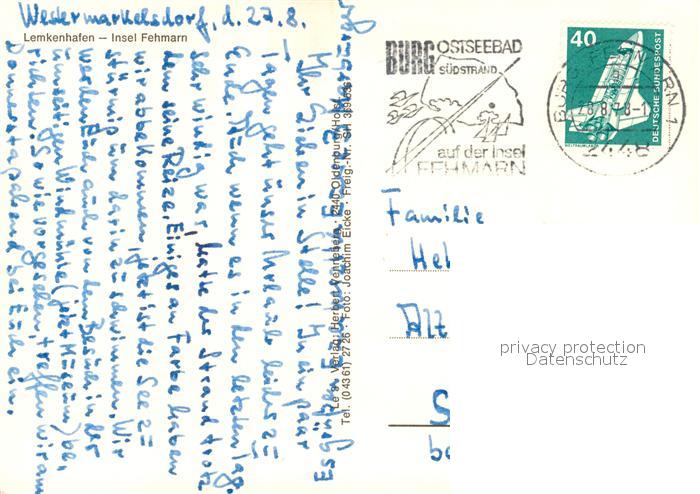 Westermarkelsdorf, d. 27.8.
Lemkenhafen – Insel Fehmarn
Ihr Lieben in Stelle! In ein paar
Tagen geht unser Urlaub leider zu
Ende. Auch wenn es in den letzten Tag.
sehr windig war, hatte der Strand trotz-
dem seine Reize. Einiges an Farbe haben
wir abbekommen, jetzt ist die See zu
stürmig um darin zu schwimmen. Wir
werden Euch auch von dem Besuch in der
umseitigen Windmühle (jetzt Museum) be-
richten. So wie vorgesehen, treffen wir am
Donnerstagabend bei Euch ein.
Es grüßt
Verlag: Herbert
2440 Oldenburg/Holst.
Tel. (04361) 2726 · Foto: Joachim Eicke · Freig.-Nr. SH
BURG OSTSEEBAD
SÜDSTRAND
auf der Insel
FEHMARN
40
DEUTSCHE BUNDESPOST
WELTRAUMLABOR
2448
Familie
privacy protection
Datenschutz